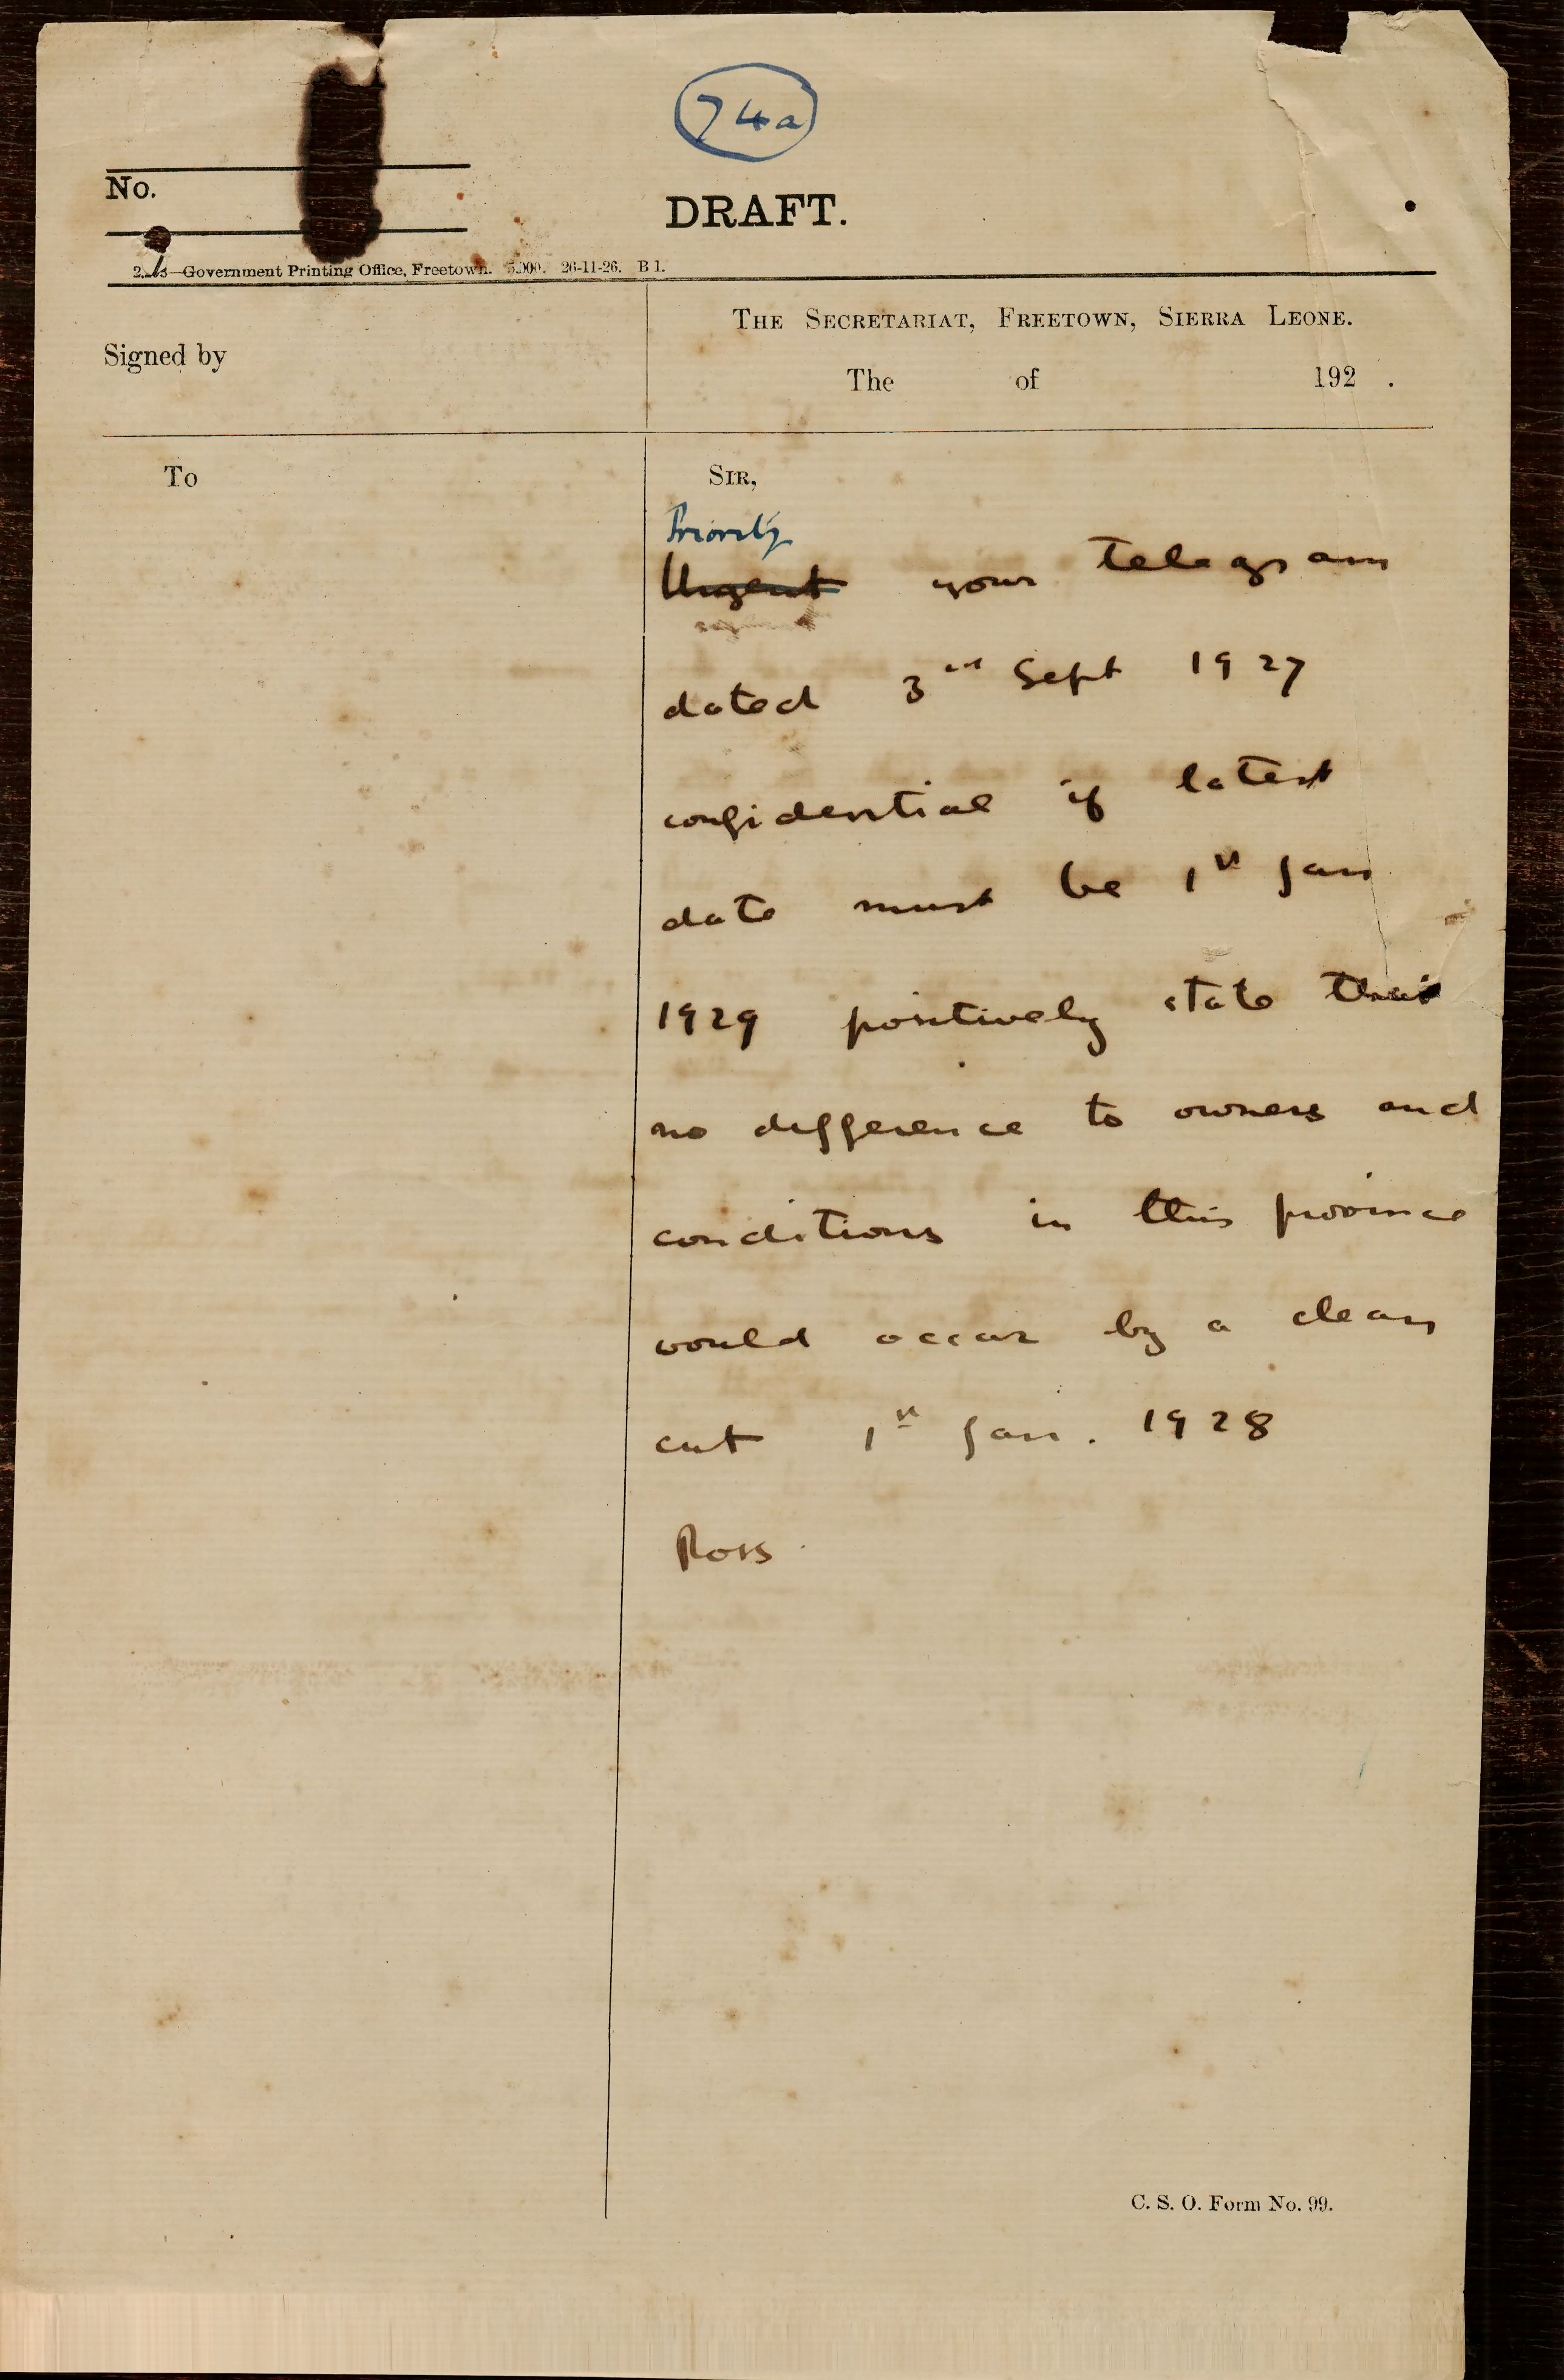 74a
No.
DRAFT.
Government Printing Office, Freetown. 5,000. 26-11-26. B 1.
THE SECRETARIAT, FREETOWN, SIERRA LEONE.
Signed by
The of 192 .
To
SIR,
Priority
Urgent your telegram
dated 3rd Sept 1927
confidential if latest
date must be 1st Jan
1929 positively state that
no difference to owners and
conditions in this province
would occur by a clean
cut 1st Jan. 1928
Ross
C. S. O. Form No. 99.